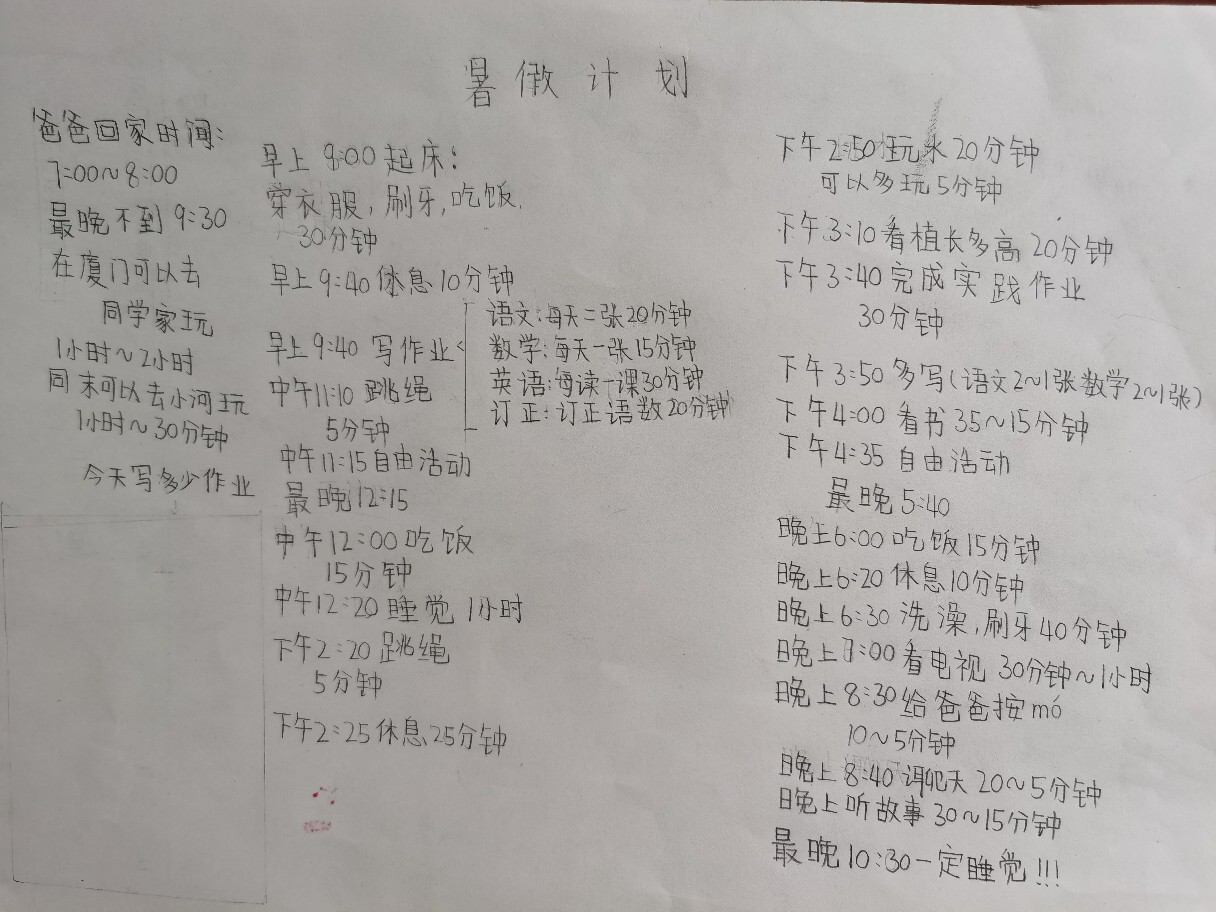 暑假计划
爸爸回家时间:
7:00~8:00
最晚不到9:30
在厦门可以去
同学家玩
1小时~2小时
周末可以去小河玩
1小时~30分钟
今天写多少作业
早上 8:00 起床:
穿衣服,刷牙,吃饭,
30分钟
早上 9:40 休息10分钟
早上 9:40 写作业
语文:每天二张20分钟
数学:每天一张15分钟
英语:每读一课30分钟
订正:订正语数20分钟
中午11:10 跳绳
5分钟
中午11:15自由活动
最晚12:15
中午12:00吃饭
15分钟
中午12:20睡觉 1小时
下午2:20跳绳
5分钟
下午2:25休息25分钟
下午2:50玩水20分钟
可以多玩5分钟
下午3:10看植长多高20分钟
下午3:40完成实践作业
30分钟
下午3:50多写(语文2~1张数学2~1张)
下午4:00看书35~15分钟
下午4:35自由活动
最晚5:40
晚上6:00吃饭15分钟
晚上6:20休息10分钟
晚上6:30洗澡,刷牙40分钟
晚上7:00看电视 30分钟~1小时
晚上8:30给爸爸按mó
10~5分钟
晚上8:40 天20~5分钟
晚上听故事30~15分钟
最晚10:30一定睡觉!!!